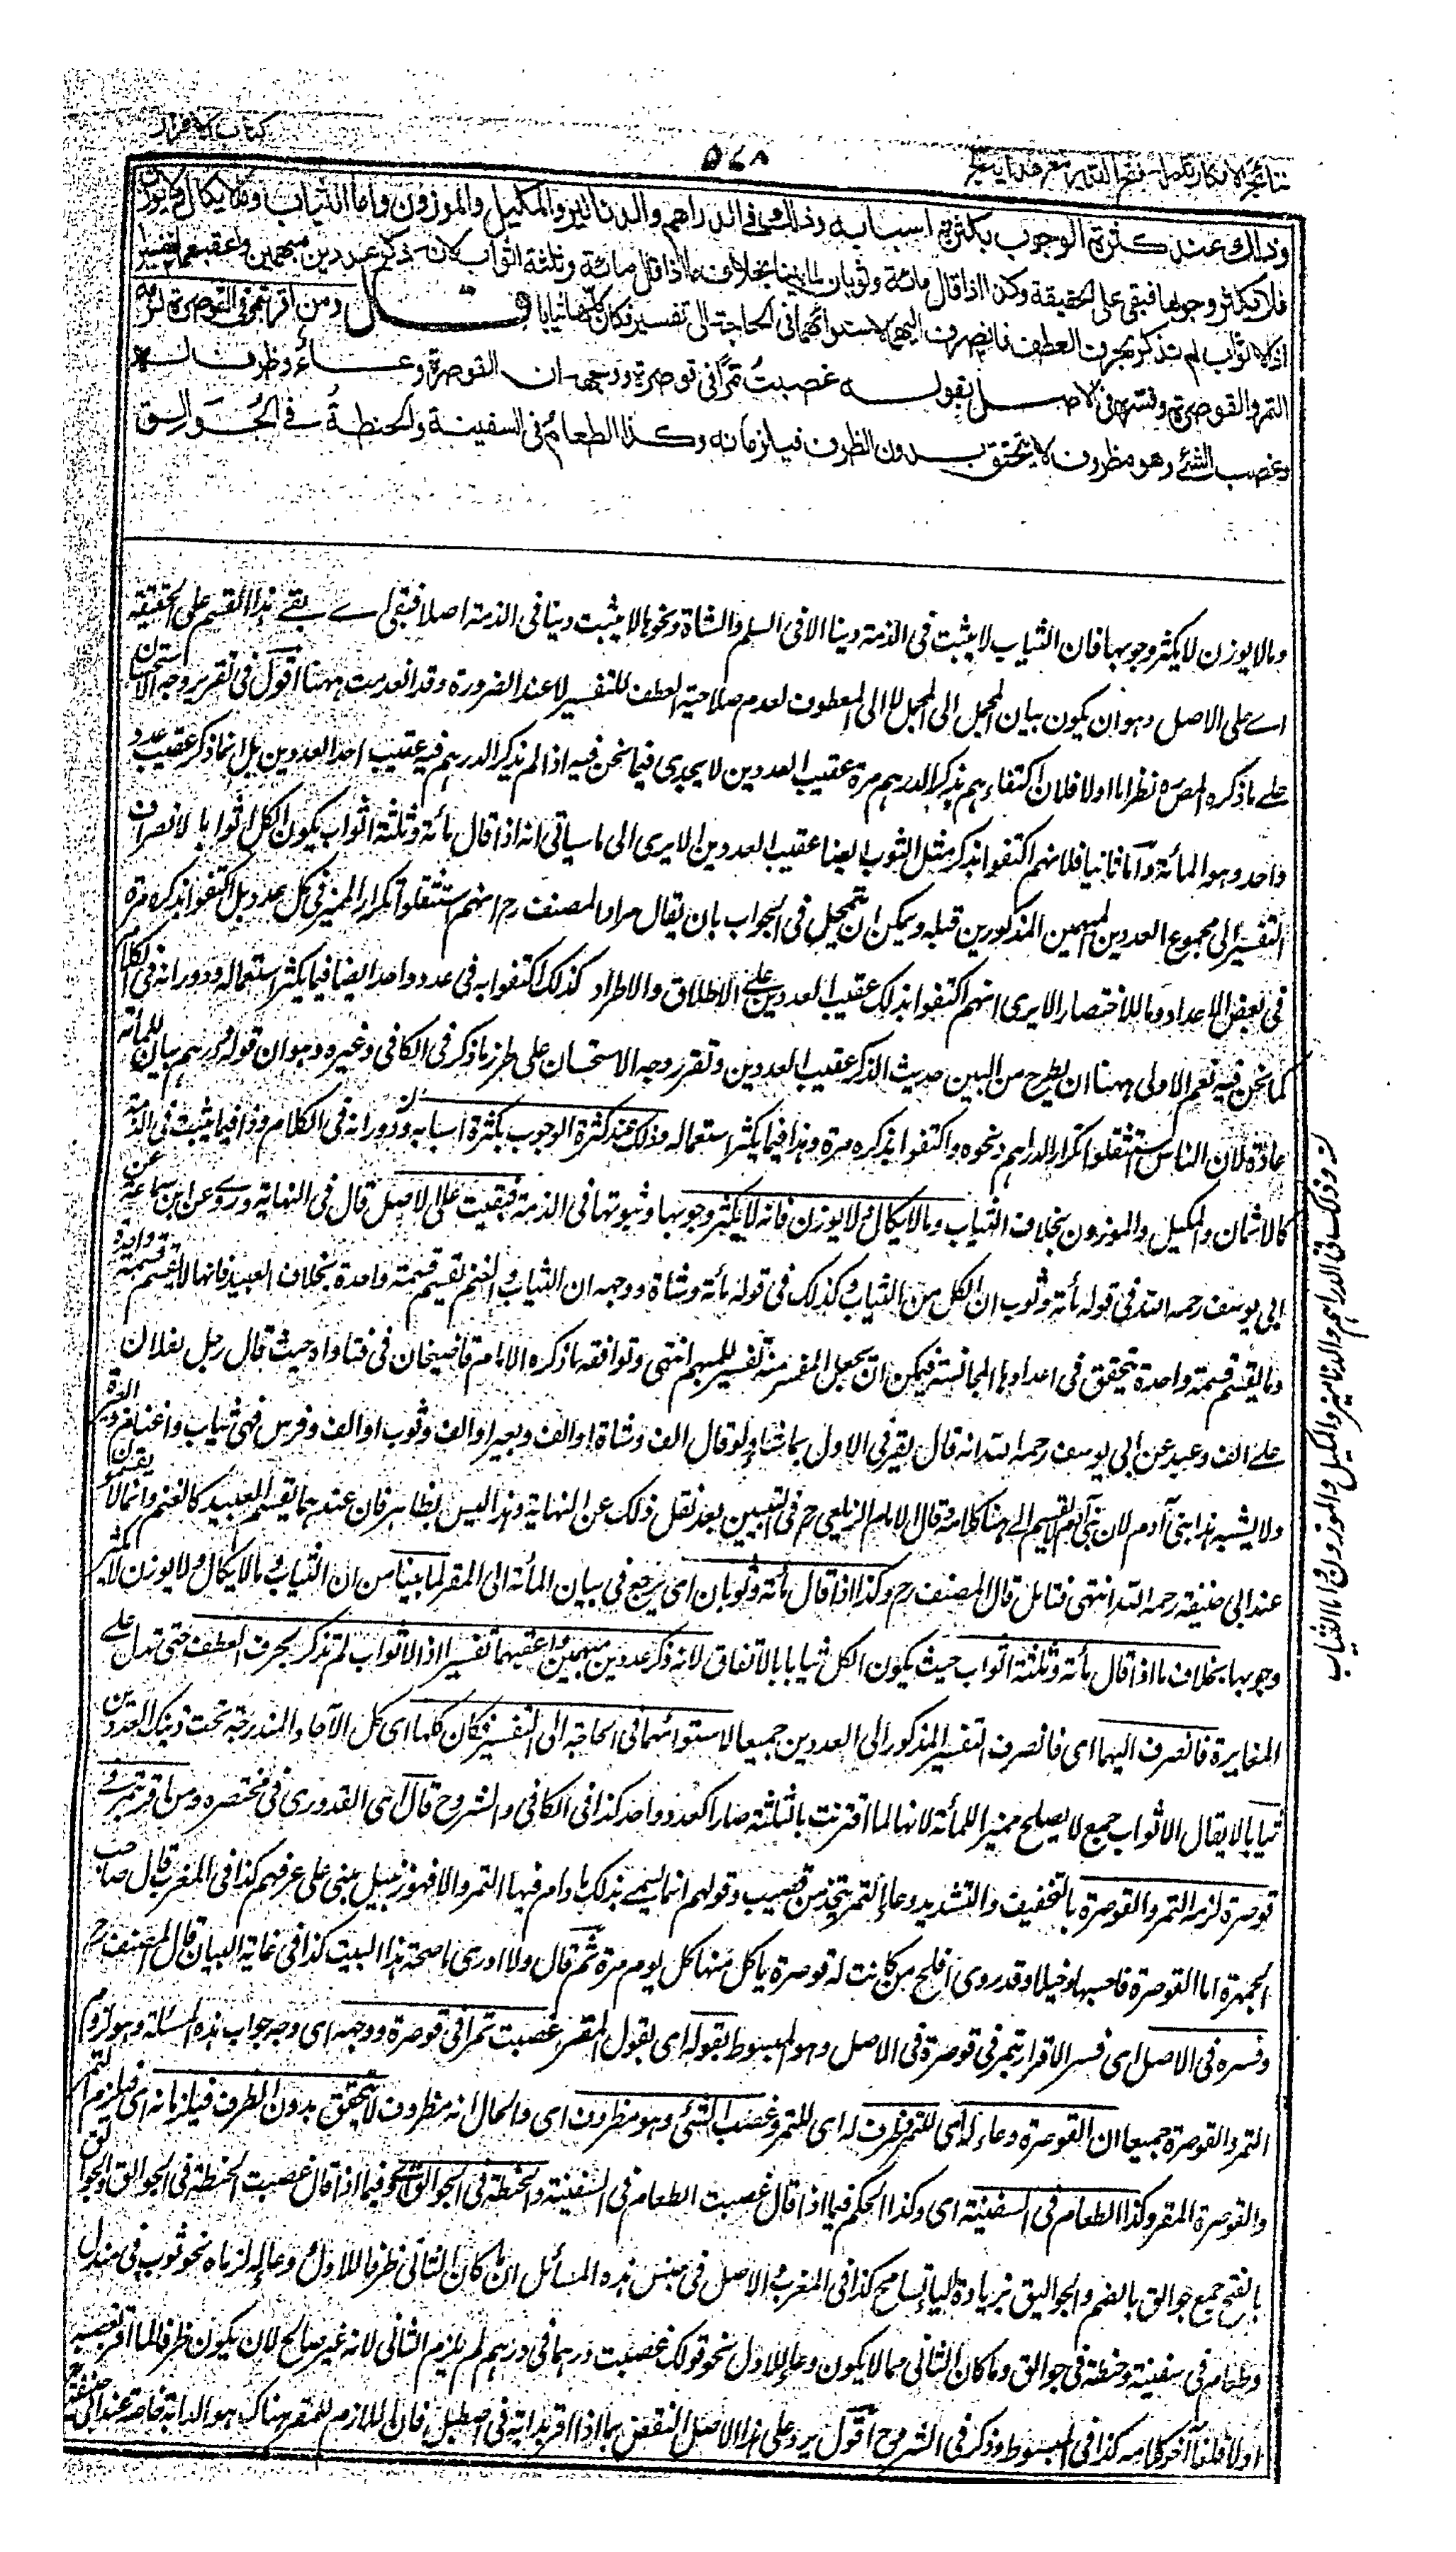 نتائج الافكار تكملة فتح القدير مع هداية ج
٥٤٨
كتاب الاقرار
وذلك عند كثرة الوجوب بكثرة اسبابه وذلك في الدراهم والدنانير والمكيل والموزون واما الثياب وما لا يكال ولا يوزن
فلا يكثر وجوبها فبقي على الحقيقة وكذا اذا قال مائة وثوبان لما بينا بخلاف ما اذا قال مائة وثلثة اثواب لانه ذكر عددين مبهمين واعقبهما تفسيرا
اذ الاثواب لم تذكر بحرف العطف فانصرف اليهما لاستوائهما في الحاجة الى تفسير فكان كلها ثيابا قال ومن اقر بتمر في القوصرة لزمه
التمر والقوصرة وفسره في الاصل بقوله غصبت تمرا في قوصرة ووجهه ان القوصرة وعاء وظرف له
وغصب الشئ وهو مظروف لا يتحقق بدون الظرف فيلزمانه وكذا الطعام في السفينة والحنطة في الجوالق
وما لا يوزن لا يكثر وجوبها فان الثياب لا يثبت في الذمة دينا الا في السلم والشاة ونحوها لا يثبت دينا في الذمة اصلا فبقي اے بقے هذا القسم على الحقيقة
اے على الاصل وهو ان يكون بيان المجمل الى المجمل لا الى المعطوف لعدم صلاحية العطف للتفسير الا عند الضرورة وقد انعدمت ههنا اقول في تقرير وجه الاستحسان
علے ما ذكره المصره نظر اما اولا فلان اكتفاءهم بذكر الدرهم مرة عقيب العددين لا يجدي فيما نحن فيه اذ لم يذكر الدرهم فيه عقيب احد العددين بل انما ذكر عقيب عدد
واحد وهو المائة واما ثانيا فلانهم اكتفوا بذكر مثل الثوب ايضا عقيب العددين الا يرى الى ما سياتي انه اذا قال مائة وثلثة اثواب يكون الكل اثوابا لانصراف
التفسير الى مجموع العددين المبهمين المذكورين قبله ويمكن ان يتمحل في الجواب بان يقال مراد المصنف رح انهم استثقلوا تكرار المميز في كل عدد بل اكتفوا بذكره مرة
في بعض الاعداد وما للاختصار الا يرى انهم اكتفوا بذلك عقيب العددين علے الاطلاق والاطراد كذلك اكتفوا به في عدد واحد ايضا فيما يكثر استعماله ودورانه في الكلام
كما نحن فيه نعم الاولى ههنا ان يطرح من البين حديث الذكر عقيب العددين وتقرر وجه الاستحسان على طرز ما ذكر في الكافي وغيره وهو ان قوله ودرهم بيان للمائة
عادة لان الناس استثقلوا تكرار الدراهم ونحوه واكتفوا بذكره مرة وهذا فيما يكثر استعماله وذلك عند كثرة الوجوب بكثرة اسبابه ودورانه في الكلام وذا فيما يثبت في الذمة
كالاثمان والمكيل والموزون بخلاف الثياب وما لا يكال ولا يوزن فانه لا يكثر وجوبها وثبوتها في الذمة فبقيت على الاصل قال في النهاية وروے عن ابن سماعة عن
ابي يوسف رحمه الله في قوله مائة وثوب ان الكل من الثياب وكذلك في قوله مائة وشاة ووجهه ان الثياب والغنم تقسم قسمة واحدة بخلاف العبيد فانها لا تقسم قسمة واحدة
وما يقسم قسمة واحدة يتحقق في اعدادها المجانسة فيمكن ان يجعل المفسر منه تفسير للمبهم انتهى وتوافقه ما ذكره الامام قاضيخان في فتاواه حيث قال رجل بفلان
علے الف وعبد عن ابي يوسف رحمه الله انه قال يقر في الاول بما شاء ولو قال الف وشاة او الف وبعير او الف وثوب او الف وفرس فهى ثياب واغنام
ولا يشبه هذا بني آدم لان بني آدم لا يقسم الے هنا كلامه وقال الامام الزيلعي رح في التبيين بعد نقل ذلك عن النهاية وهذا ليس بظاهر فان عندهما يقسم العبيد كالغنم وانما لا يقسمون
عند ابي حنيفة رحمه الله انتهى فتامل قال المصنف رح وكذا اذا قال مائة وثوبان اى يرجع في بيان المائة الى المقر لما بينا من ان الثياب وما لا يكال ولا يوزن لا يكثر
وجوبها بخلاف ما اذا قال مائة وثلثة اثواب حيث يكون الكل ثيابا بالاتفاق لانه ذكر عددين مبهمين واعقبهما تفسيرا اذ الاثواب لم تذكر بحرف العطف حتى تدل علے
المغايرة فانصرف اليهما اى فانصرف التفسير المذكور الى العددين جميعا لاستوائهما في الحاجة الى التفسير فكان كلها اى كل الآحاد المندرجة تحت ذينك العددين
ثيابا لا يقال الاثواب جمع لا يصلح مميزا للمائة لانها لما اقترنت بالثلثة صارا كعدد واحد كذا في الكافي والشروح قال اى القدوري في مختصره ومن اقر بتمر في
قوصرة لزمه التمر والقوصرة بالتخفيف والتشديد وعاء التمر يتخذ من قصب وقولهم انما يسمے بذلك ما دام فيها التمر والا فهو زنبيل مبني على عرفهم كذا في المغرب قال صاحب
الجمهرة اما القوصرة فاحسبها دخيلا وقد روى افلح من كانت له قوصرة ياكل منها كل يوم مرة ثم قال ولا ادرى ما صحة هذا البيت كذا في غاية البيان قال المصنف رح
وفسره في الاصل اى فسر الاقرار بتمر في قوصرة في الاصل وهو المبسوط بقوله اى بقول المقر غصبت تمرا في قوصرة ووجهه اى وجه جواب هذه المسئلة وهو لزوم
التمر والقوصرة جميعا ان القوصرة وعاء له اى للتمر وظرف له اى للتمر وغصب الشئ وهو مظروف اى والحال انه مظروف لا يتحقق بدون الظرف فيلزمانه اى فيلزم التمر
والقوصرة المقر وكذا الطعام في السفينة اى وكذا الحكم فيما اذا قال غصبت الطعام في السفينة والحنطة في الجوالق وفيما اذا قال غصبت الحنطة في الجوالق والجوالق
بالفتح جمع جوالق بالضم والجواليق بزيادة الياء تسامح كذا في المغرب والاصل في جنس هذه المسائل ان ما كان الثاني ظرفا للاول ووعاء له لزماه نحو ثوب في منديل
وطعام في سفينة وحنطة في جوالق وما كان الثاني مما لا يكون وعاء للاول نحو قولك غصبت درهما في درهم لم يلزم الثاني لانه غير صالح لان يكون ظرفا لما اقر بغصبه
اولا فلغا آخر كلامه كذا في المبسوط وذكر في الشروح اقول يرد على هذا الاصل النقض بما اذا اقر بدابة في اصطبل فان اللازم للمقر هناك هو الدابة خاصة عند ابي حنيفة
وذلك في الدراهم والدنانير والمكيل والموزون واما الثياب